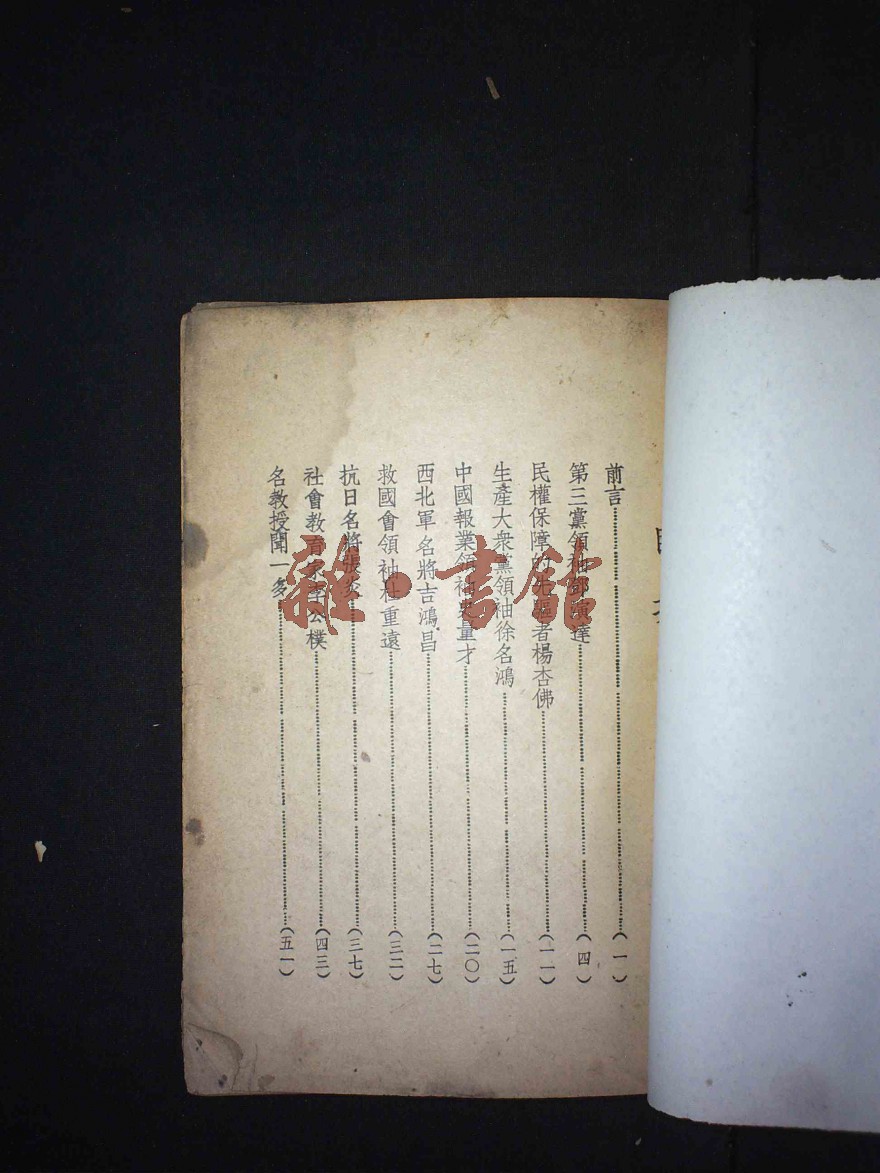 目次
前言…………(一)
第三黨領袖鄧演達…………(四)
民權保障的先驅者楊杏佛…………(一一)
生產大衆黨領袖徐名鴻…………(一五)
中國報業領袖史量才…………(二〇)
西北軍名將吉鴻昌…………(二七)
救國會領袖杜重遠…………(三二)
抗日名將張炎…………(三七)
社會教育家李公樸…………(四三)
名教授聞一多…………(五一)
雜·書館